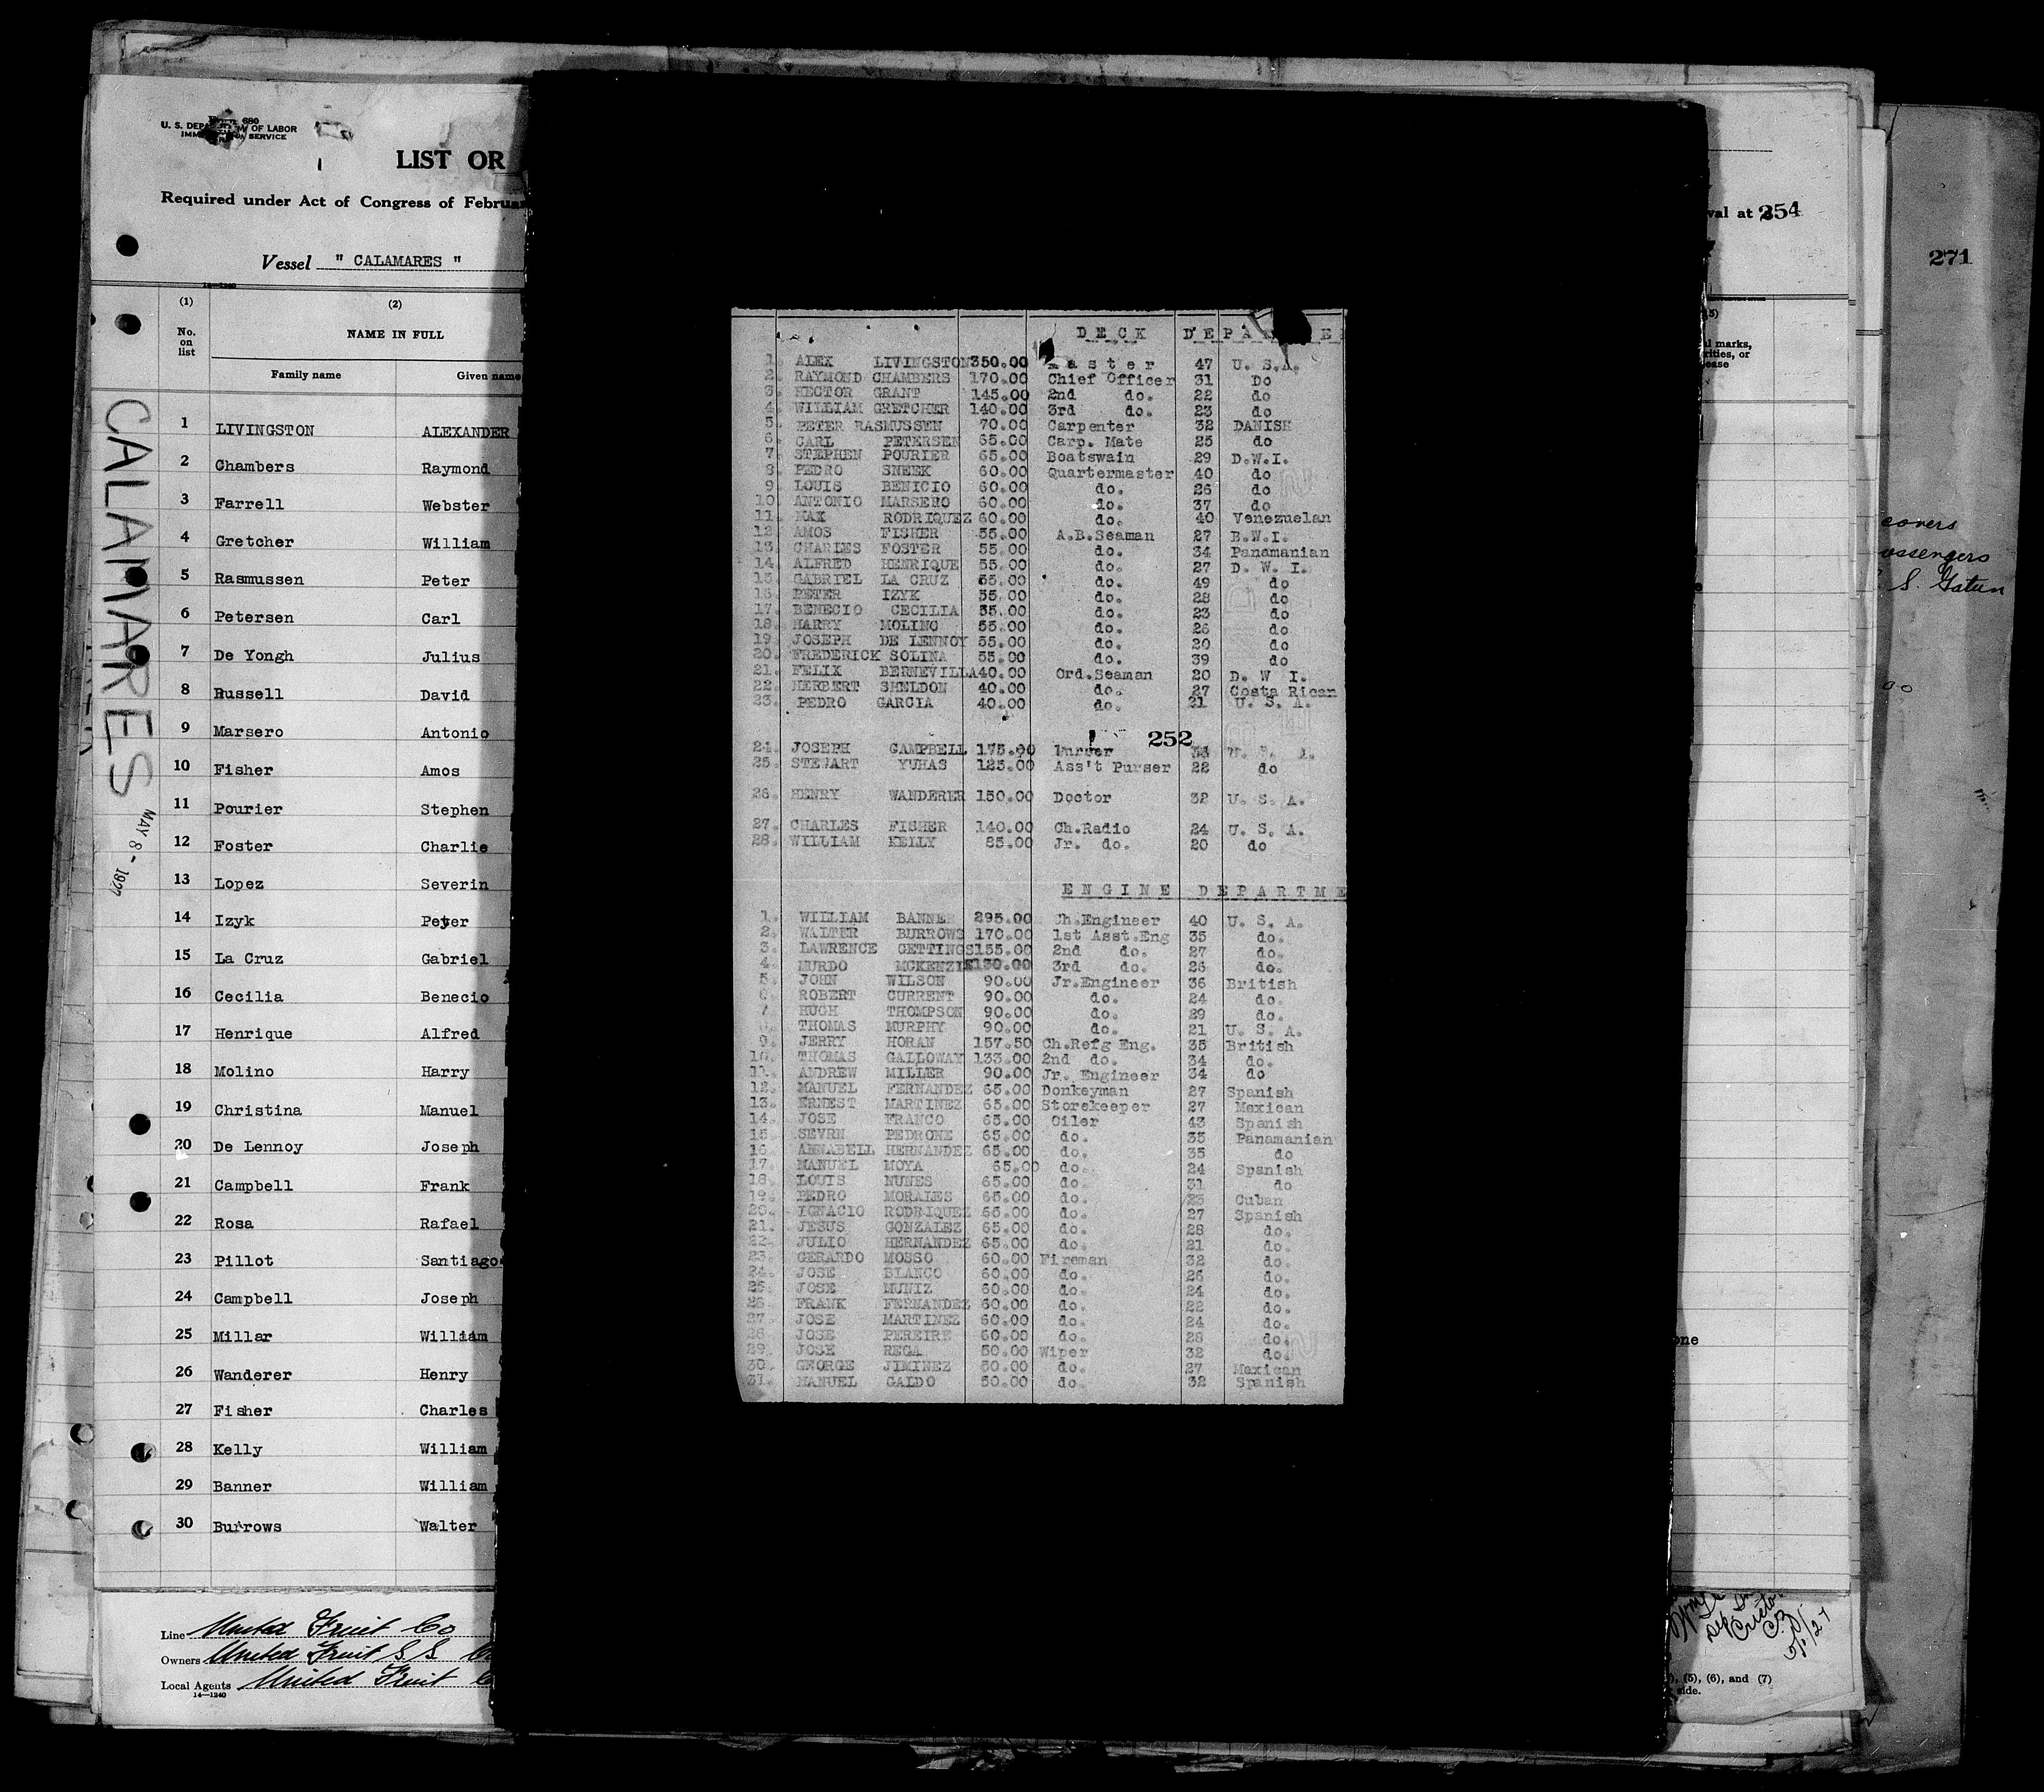 680
U. S. DEP OF LABOR
SERVICE
LIST OR
Required under Act of Congress of Februar
Vessel " CALAMARES "
14—1240
(1)
No.
on
list
(2)
NAME IN FULL
Family name Given name
CALAMARES
MAY 8 - 1927
1 LIVINGSTON ALEXANDER
2 Chambers Raymond
3 Farrell Webster
4 Gretcher William
5 Rasmussen Peter
6 Petersen Carl
7 De Yongh Julius
8 Russell David
9 Marsero Antonio
10 Fisher Amos
11 Pourier Stephen
12 Foster Charlie
13 Lopez Severin
14 Izyk Peter
15 La Cruz Gabriel
16 Cecilia Benecio
17 Henrique Alfred
18 Molino Harry
19 Christina Manuel
20 De Lennoy Joseph
21 Campbell Frank
22 Rosa Rafael
23 Pillot Santiago
24 Campbell Joseph
25 Millar William
26 Wanderer Henry
27 Fisher Charles
28 Kelly William
29 Banner William
30 Burrows Walter
Line United Fruit Co
Owners United Fruit S S Co
Local Agents United Fruit C
14—1240
DECK DEPA
1. ALEX LIVINGSTON 350.00 Master 47 U. S.A.
2. RAYMOND CHAMBERS 170.00 Chief Officer 31 Do
3. HECTOR GRANT 145.00 2nd do. 22 do
4. WILLIAM GRETCHER 140.00 3rd do. 23 do
5. PETER RASMUSSEN 70.00 Carpenter 32 DANISH
6. CARL PETERSEN 65.00 Carp. Mate 25 do
7. STEPHEN POURIER 65.00 Boatswain 29 D.W.I.
8. PEDRO SNEEK 60.00 Quartermaster 40 do
9. LOUIS BENICIO 60.00 do. 26 do
10. ANTONIO MARSERO 60.00 do. 37 do
11. MAX RODRIQUEZ 60.00 do. 40 Venezuelan
12. AMOS FISHER 55.00 A.B.Seaman 27 B.W.I.
13. CHARLES FOSTER 55.00 do. 34 Panamanian
14. ALFRED HENRIQUE 55.00 do. 27 D. W. I.
15. GABRIEL LA CRUZ 55.00 do. 49 do
16. PETER IZYK 55.00 do. 28 do
17. BENECIO CECILIA 55.00 do. 23 do
18. HARRY MOLINO 55.00 do. 26 do
19. JOSEPH DE LENNOY 55.00 do. 20 do
20. FREDERICK SOLINA 55.00 do. 39 do
21. FELIX BERNEVILLA 40.00 Ord.Seaman 20 D. W I.
22. HERBERT SHELDON 40.00 do. 27 Costa Rican
23. PEDRO GARCIA 40.00 do. 21 U. S. A.
252
24. JOSEPH CAMPBELL 175.00 Purser
25. STEWART YUHAS 125.00 Ass't Purser 22 do
26. HENRY WANDERER 150.00 Doctor 32 U. S. A.
27. CHARLES FISHER 140.00 Ch.Radio 24 U. S. A.
28. WILLIAM KELLY 85.00 Jr. do. 20 do
ENGINE DEPARTME
1. WILLIAM BANNER 295.00 Ch.Engineer 40 U. S. A.
2. WALTER BURROWS 170.00 1st Asst.Eng 35 do.
3. LAWRENCE GETTINGS 155.00 2nd do. 27 do.
4. MURDO MCKENZIE 130.00 3rd do. 26 do.
5. JOHN WILSON 90.00 Jr.Engineer 36 British
6. ROBERT CURRENT 90.00 do. 24 do.
7. HUGH THOMPSON 90.00 do. 29 do.
THOMAS MURPHY 90.00 do. 21 U. S. A.
9. JERRY HORAN 157.50 Ch.Refg Eng. 35 British
10. THOMAS GALLOWAY 133.00 2nd do. 34 do.
11. ANDREW MILLER 90.00 Jr. Engineer 34 do
12. MANUEL FERNANDEZ 65.00 Donkeyman 27 Spanish
13. ERNEST MARTINEZ 65.00 Storekeeper 27 Mexican
14. JOSE FRANCO 65.00 Oiler 43 Spanish
15. SEVRN PEDRONE 65.00 do. 35 Panamanian
16. ANNABELL HERNANDEZ 65.00 do. 35 do
17. MANUEL MOYA 65.00 do. 24 Spanish
18. LOUIS NUNES 65.00 do. 31 do
19. PEDRO MORALES 65.00 do. 23 Cuban
20. IGNACIO RODRIQUEZ 65.00 do. 27 Spanish
21. JESUS GONZALEZ 65.00 do. 28 do.
22. JULIO HERNANDEZ 65.00 do. 21 do.
23. GERARDO MOSSO 60.00 Fireman 32 do.
24. JOSE BLANCO 60.00 do. 26 do.
25. JOSE MUNIZ 60.00 do. 24 do.
26. FRANK FERNANDEZ 60.00 do. 22 do.
27. JOSE MARTINEZ 60.00 do. 24 do.
28. JOSE PEREIRE 60.00 do. 28 do.
29. JOSE REGA 50.00 Wiper 32 do.
30. GEORGE JIMINEZ 50.00 do. 27 Mexican
31. MANUEL GALDO 50.00 do. 32 Spanish
val at 254
l marks,
rities, or
ease
one
, (5), (6), and (7)
side.
271
covers
assengers
S. Gatun